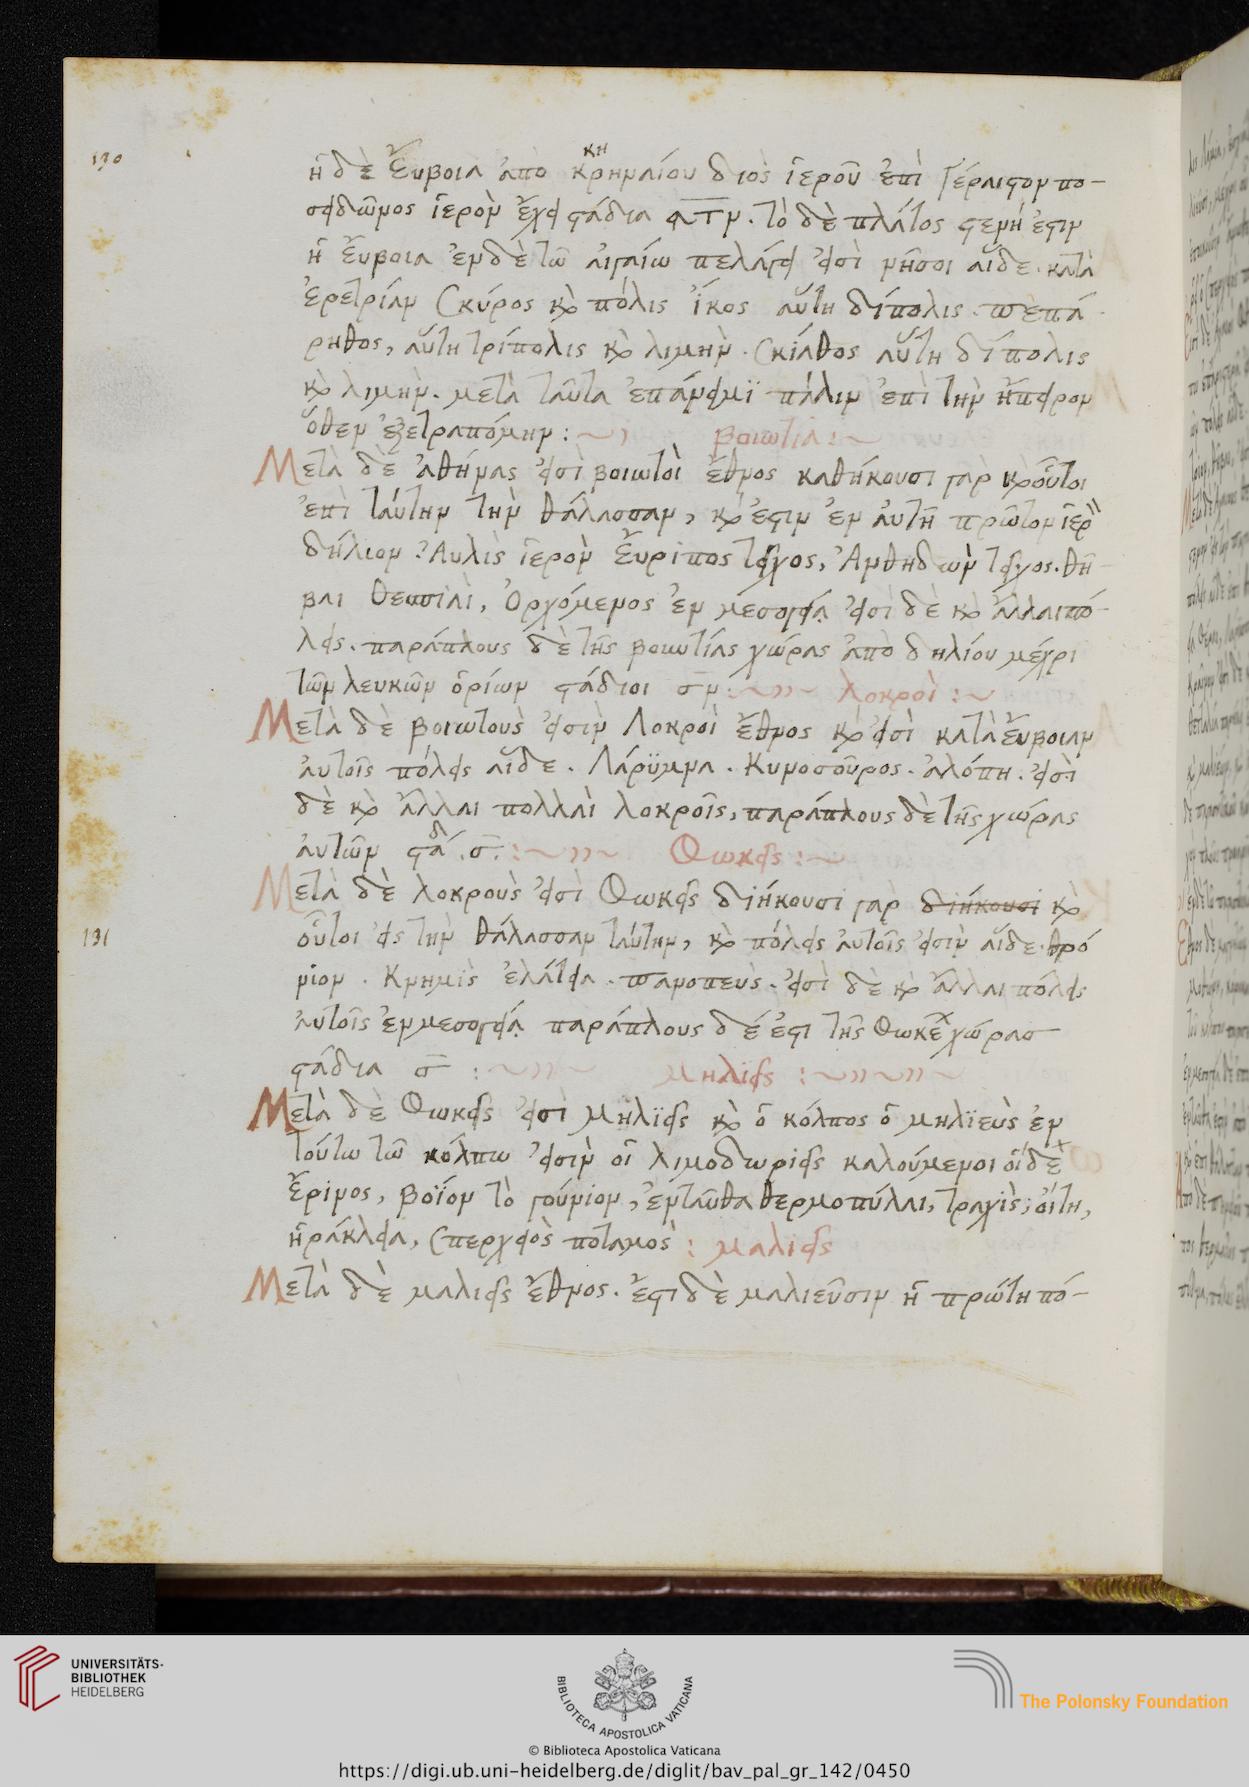 130
ἡ δὲ Ἔυβοια ἀπὸ κρηναίου διὸς ἱεροῦ ἐπὶ Γέραιστον πο-
κη
σειδῶνος ἱερὸν ἔχει στάδια ͵ατν. τὸ δὲ πλάτος στενή ἐστιν
ἡ Ἔυβοια ἐν δὲ τῶ ἀιγαίω πελάγει εἰσὶ νῆσοι αἵδε. κατὰ
ἐρετρίαν Σκύρος κὰι πόλις ἴκος αὕτη δίπολις. πεπά
ρηθος, αὕτη τρίπολις κὰι λιμὴν. Σκίαθος αὕτη δίπολις
κὰι λιμὴν. μετὰ ταῦτα ἐπάνειμϊ πάλιν ἐπὶ τὴν ἤπειρον
ὅθεν ἐξετραπόμην :
βοιωτία :
Μετὰ δὲ ἀθήνας εἰσὶ βοιωτοὶ ἔθνος καθήκουσι γὰρ κὰι οὗτοι
ἐπὶ ταύτην τὴν θάλασσαν, κὰι ἐστιν ἐν ἀυτῆ πρῶτον ἱερὸν
δήλιον Ἀυλὶς ἱερὸν Ἔυριπος τεῖχος, Ἀνθηδὼν τεῖχος. θῆ-
βαι θεσπιαὶ, Ὀρχόμενος ἐν μεσογεία εἰσὶ δὲ κὰι ἄλλαι πό-
λεις. παράπλους δὲ τῆς βοιωτίας χώρας ἀπὸ δηλίου μέχρι
τῶν λευκῶν ὁρίων στάδιοι σν :
λοκροὶ :
Μετὰ δὲ βοιωτοὺς εἰσιν Λοκροὶ ἔθνος κὰι εἰσὶ κατὰ ἔυβοιαν
ἀυτοῖς πόλεις αἵδε. Λάρϋμνα. Κυνοσοῦρος. ἀλόπη. εἰσὶ
δὲ κὰι ἄλλαι πολλαὶ λοκροῖς, παράπλους δὲ τῆς χώρας
ἀυτῶν στά. σ. :
Φωκεῖς :
Μετὰ δὲ λοκροὺς εἰσὶ Φωκεῖς διήκουσι γὰρ διήκουσι κὰι
131
οὗτοι εἰς τὴν θάλασσαν ταύτην, κὰι πόλεις ἀυτοῖς εἰσιν αἵδε. θρό
νιον. Κνημὶς ἐλάτεια. πανοπεὺς. εἰσὶ δὲ κὰι ἄλλαι πόλεις
ἀυτοῖς ἐν μεσογεία παράπλους δέ ἐστι τῆς Φωκέων χώρας
στάδια σ :
μηλιεῖς :
Μετὰ δὲ Φωκεῖς εἰσὶ μηλϊεῖς κὰι ὁ κόλπος ὁ μηλϊεὺς ἐν
τούτω τῶ κόλπω εἰσιν οἱ λιμοδωριεῖς καλούμενοι οἵδε
Ἔρινος, βοϊόν τὸ γούνιον, ἐνταῦθα θερμοπύλαι, τραχὶς, οἴτη,
ἡράκλεια, Σπερχειὸς ποταμὸς : μαλιεῖς
Μετὰ δὲ μαλιεῖς ἔθνος. ἔστι δὲ μαλιεῦσιν ἡ πρώτη πό-
UNIVERSITÄTS-
BIBLIOTHEK
HEIDELBERG
BIBLIOTECA APOSTOLICA VATICANA
The Polonsky Foundation
© Biblioteca Apostolica Vaticana
https://digi.ub.uni-heidelberg.de/diglit/bav_pal_gr_142/0450